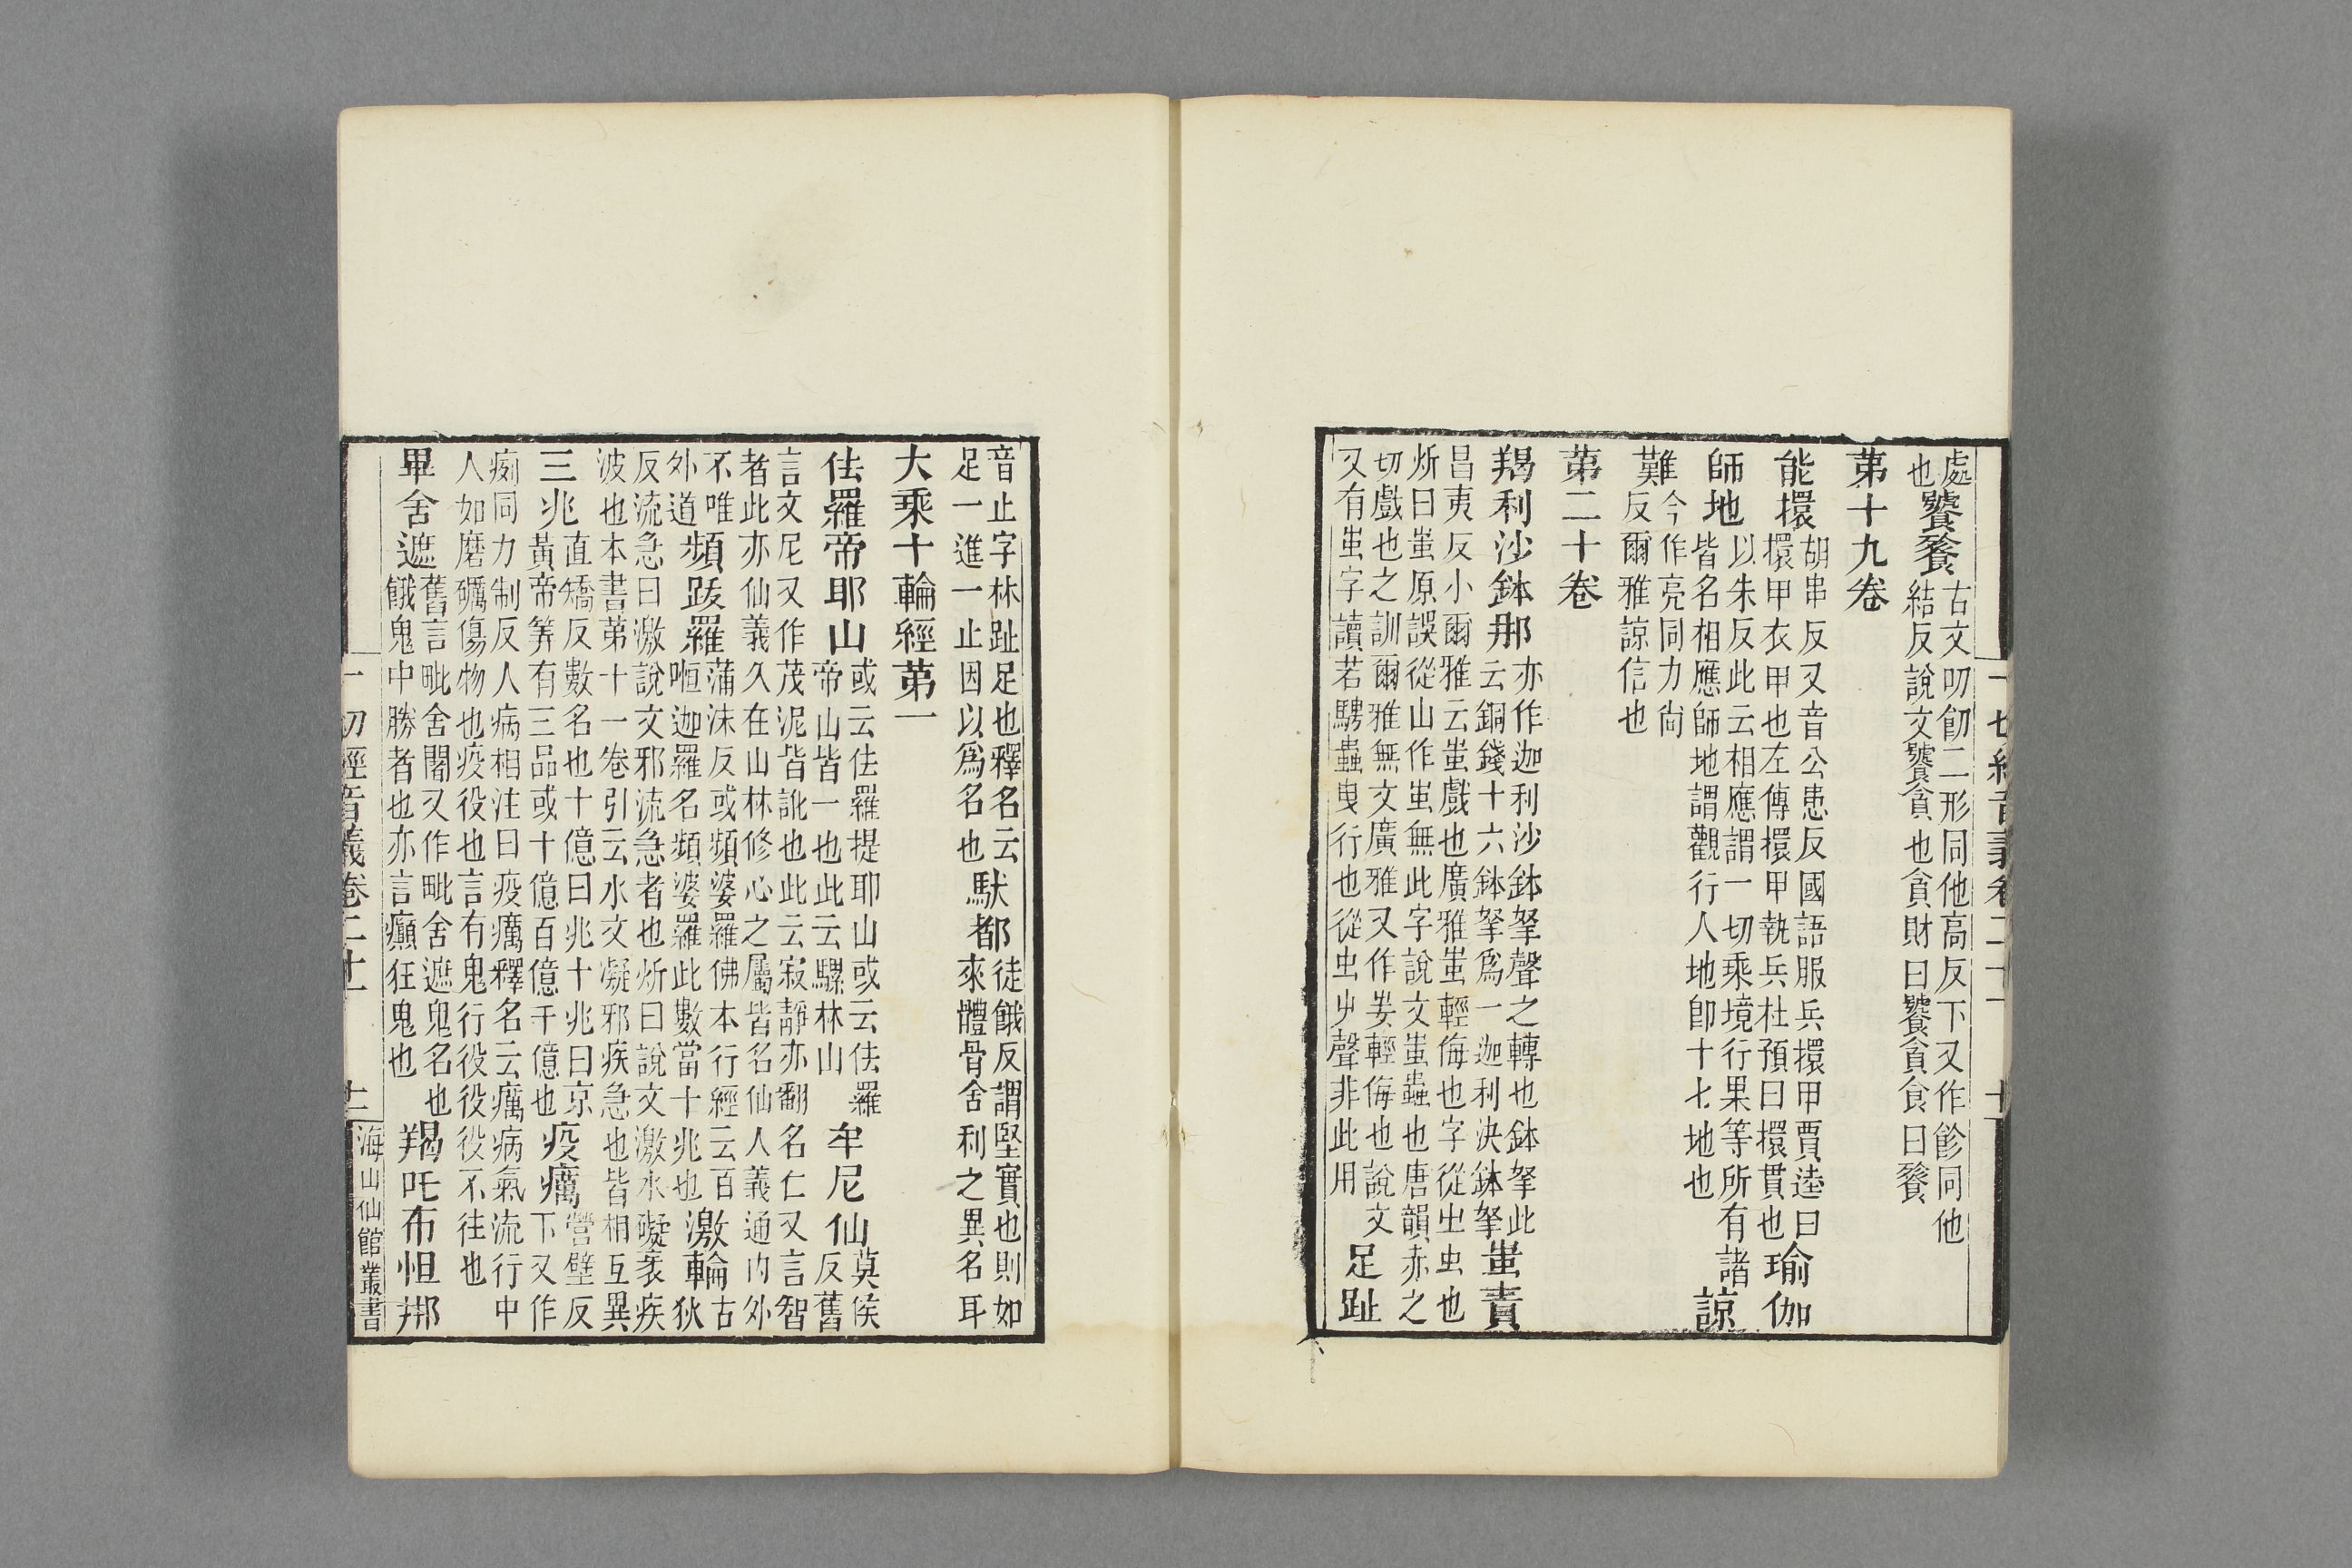 處
也
饕餮
古文叨飿二形同他高反下又作飻同他
結反說文饕貪也貪財曰饕貪食曰餮
第十九卷
能擐
胡串反又音公患反國語服兵擐甲賈逵曰
擐甲衣甲也左傳擐甲執兵杜預曰擐貫也
瑜伽
師地
以朱反此云相應謂一切乘境行果等所有諸
皆名相應師地謂觀行人地卽十七地也
諒
難
今作亮同力尚
反爾雅諒信也
第二十卷
羯利沙鉢那
亦作迦利沙鉢拏聲之轉也鉢拏此
云銅錢十六鉢拏爲一迦利決鉢拏
蚩責
昌夷反小爾雅云蚩戲也廣雅蚩輕侮也字從㞢虫也
炘曰蚩原誤從山作䖝無此字說文蚩蟲也唐韻赤之
切戲也之訓爾雅無文廣雅又作㛂輕侮也說文
又有䖝字讀若騁蟲曳行也從虫屮聲非此用
足趾
音止字林趾足也釋名云
足一進一止因以爲名也
馱都
徒餓反謂堅實也則如
來體骨舍利之異名耳
大乘十輪經第一
佉羅帝耶山
或云佉羅提耶山或云佉羅
帝山皆一也此云騾林山
牟尼仙
莫侯
反舊
言文尼又作茂泥皆訛也此云寂靜亦翻名仁又言智
者此亦仙義久在山林修心之屬皆名仙人義通內外
不唯
外道
頻跋羅
蒲沫反或頻婆羅佛本行經云百
㖶迦羅名頻婆羅此數當十兆也
激輪
古
狄
反流急曰激說文邪流急者也炘曰說文激水礙衺疾
波也本書第十一卷引云水文凝邪疾急也皆相互異
三兆
直矯反數名也十億曰兆十兆曰京
黃帝筭有三品或十億百億千億也
疫癘
營壁反
下又作
痢同力制反人病相注曰疫癘釋名云癘病氣流行中
人如磨礪傷物也疫役也言有鬼行役役役不往也
畢舍遮
舊言毗舍闍又作毗舍遮鬼名也
餓鬼中勝者也亦言癲狂鬼也
羯吒布怛那
一切經音義卷二十一
十一
海山仙館叢書